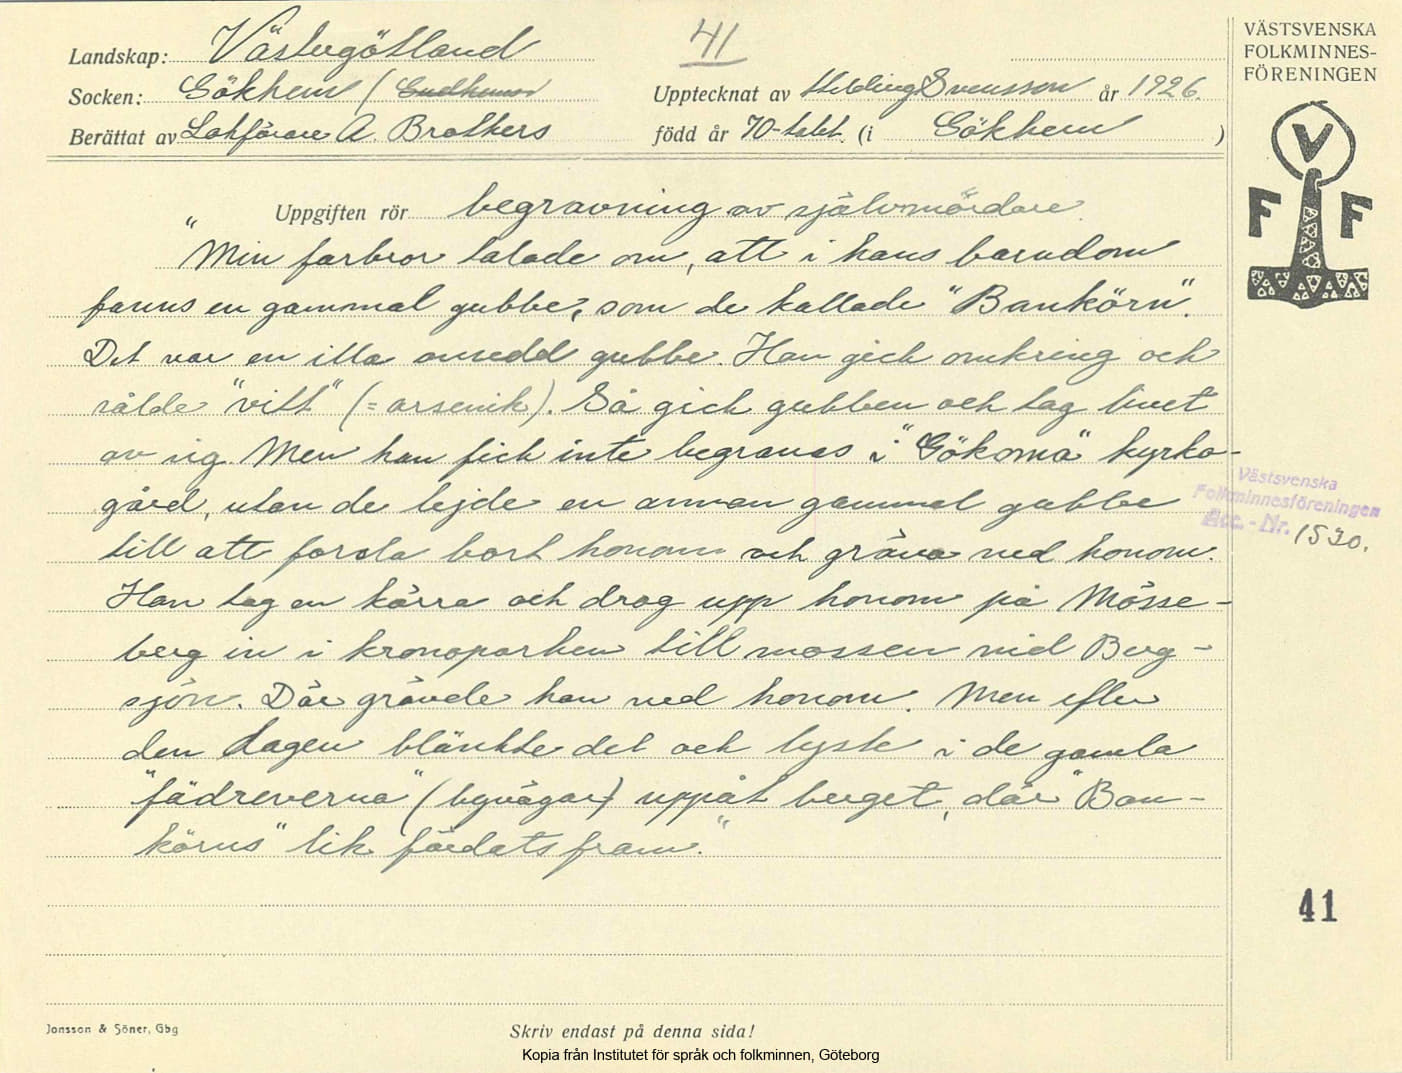 VÄSTSVENSKA
FOLKMINNES-
FÖRENINGEN
V
F F
41
Landskap: Västergötland
Socken: Gökhem (Gudhems)
Upptecknat av Hilding Svensson år 1926.
Berättat av Lokförare A. Brothers
född år 70-talet. (i Gökhem )
Uppgiften rör begravning av självmördare.
"Min farbror talade om, att i hans barndom
fanns en gammal gubbe, som de kallade "Bankörn".
Det var en illa ansedd gubbe. Han gick omkring och
sålde "vitt" (= arsenik). Så gick gubben och tag livet
av sig. Men han fick inte begravas i "Gökoma" kyrko-
gård, utan de lejde en annan gammal gubbe
till att forsla bort honom och gräva ned honom.
Han tag en kärra och drog upp honom på Mösse-
berg in i kronoparken till mossen vid Berg-
sjön. Där grävde han ned honom. Men efter
den dagen blänkte det och lyste i de gamla
"fädreverna" (byvägar) uppåt berget, där "Ban-
körns" lik fördats fram."
Västsvenska
Folkminnesföreningen
Acc. - Nr. 1530.
41
Jonsson & Söner, Gbg
Skriv endast på denna sida!
Kopia från Institutet för språk och folkminnen, Göteborg